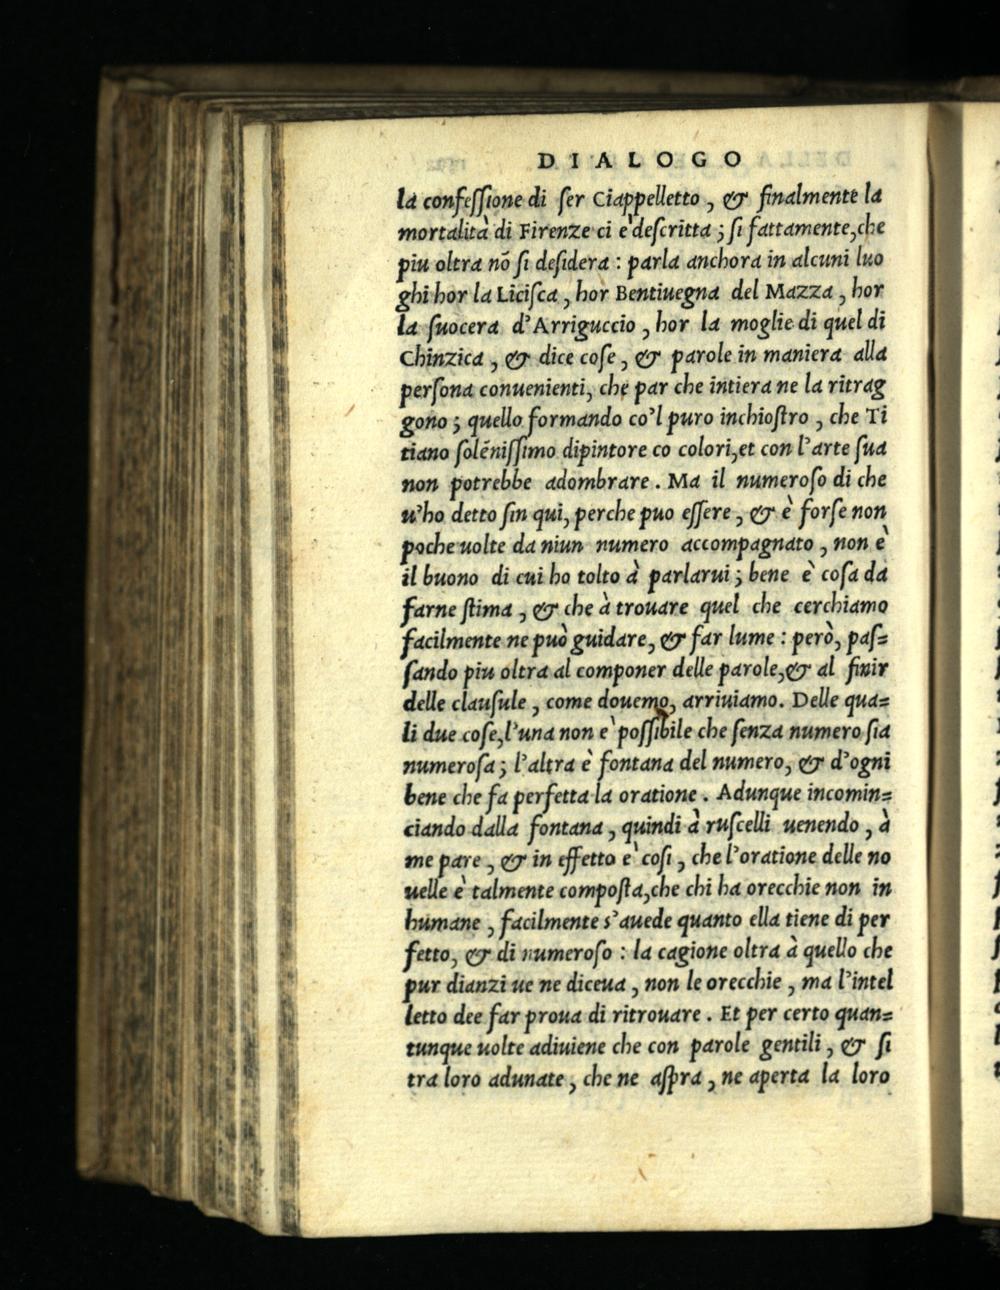 DIALOGO
la confeſſione di ſer Ciappelletto, & finalmente la
mortalità di Firenze ci è deſcritta; ſi fattamente, che
piu oltra nõ ſi deſidera: parla anchora in alcuni luo
ghi hor la Liciſca, hor Bentiuegna del Mazza, hor
la ſuocera d'Arriguccio, hor la moglie di quel di
Chinzica, & dice coſe, & parole in maniera alla
perſona conuenienti, che par che intiera ne la ritrag
gono; quello formando co'l puro inchioſtro, che Ti
tiano ſolẽniſſimo dipintore co colori, et con l'arte ſua
non potrebbe adombrare. Ma il numeroſo di che
u'ho detto ſin qui, perche puo eſſere, & è forſe non
poche uolte da niun numero accompagnato, non è
il buono di cui ho tolto à parlarui; bene è coſa da
farne ſtima, & che à trouare quel che cerchiamo
facilmente ne può guidare, & far lume: però, paſ=
ſando piu oltra al componer delle parole, & al finir
delle clauſule, come douemo, arriuiamo. Delle qua=
li due coſe, l'una non è poſſibile che ſenza numero ſia
numeroſa; l'altra è fontana del numero, & d'ogni
bene che fa perfetta la oratione. Adunque incomin=
ciando dalla fontana, quindi à ruſcelli uenendo, à
me pare, & in effetto è coſi, che l'oratione delle no
uelle è talmente compoſta, che chi ha orecchie non in
humane, facilmente s'auede quanto ella tiene di per
fetto, & di numeroſo: la cagione oltra à quello che
pur dianzi ue ne diceua, non le orecchie, ma l'intel
letto dee far proua di ritrouare. Et per certo quan=
tunque uolte adiuiene che con parole gentili, & ſi
tra loro adunate, che ne aſpra, ne aperta la loro